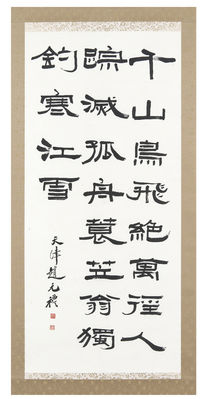 千山鳥飛絶萬徑人
踪滅孤舟蓑笠翁獨
釣寒江雪
天津趙元